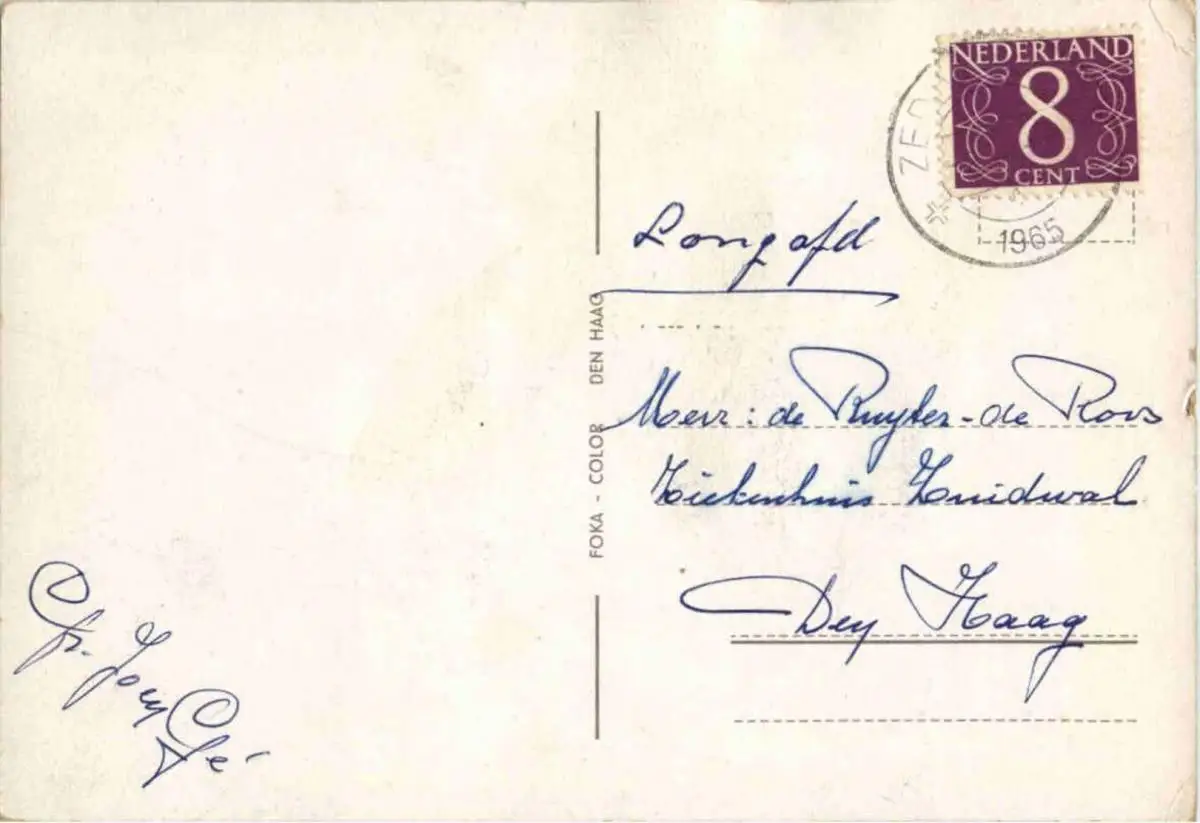 NEDERLAND
8
CENT
1965
Longafd
FOKA - COLOR DEN HAAG
Mevr: de Ruyter-de Roos
Ziekenhuis Zuidwal
Den Haag